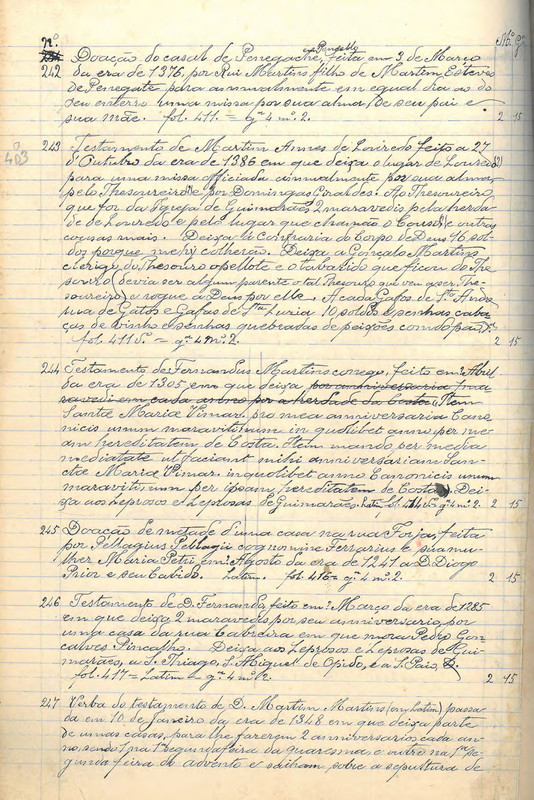 nº. Mº. Gª.
Doação do casal de Penegache, feita em 3 de Março
242 da era de 1376, por Rui Martins filho de Martim Esteves
de Penegate para annualmente em egual dia ao do
seu enterro uma missa por sua alma, de seu pai e
sua mãe. fol. 411. = gª 4 mº. 2. 2 15
243 Testamento de Martim Annes de Louredo feito a 27
403 d'Outubro da era de 1386 em que deixa o lugar de Louredo
para uma missa officiada annualmente por sua alma,
pelo Thesoureiro e por Domingas Giraldes. Ao Thesoureiro
que for da Igreja de Guimarães 2 maravedis pela herda-
de de Louredo e pelo lugar que chamão o e outras
cousas mais. Deixa á Confraria do Corpo de Deus 46 sol-
dos porque colherão. Deixa a Gonçalo Martins
clerigo do Thesouro o pellote e o tabardo que ficou do The-
souro (devia ser algum parente o tal Thesouro que veu a ser The-
soureiro) e rogue a Deus por elle. A cada Gafos de Stº Andre
sua de Gatos e Gafas de Stª Luzia 10 soldos e senhas caba-
ças de vinho e senhas quebradas de peixões com do pão, &.
fol. 411 vº. = gª 4 mº. 2. 2 15
244 Testamento de Fernandus Martins conego, feito em Abril
da era de 1305 em que deixa por anniversario ma-
ravedi em cada anno por a herdade da Costa. Item
Sancte Marie Vimar. pro mea anniversaria Cano-
nicis unum maravitinum in quolibet anno per me-
am hereditatem de Costa. Item mando per media
medietate ut faciant mihi anniversariam San-
ctae Marie Vimar. in quolibet anno Canonicis unum
maravitinum per ipsam hereditatem de Costa. Dei-
xa aos Leprosos e Leprosas de Guimarães. Latim fol. gª 4 mº. 2. 2 15
245 Doação de metade d'uma casa na rua Forjas, feita
por Pellagius Pellagii cognomine Ferrarius e sua mu-
lher Maria Petri em Agosto da era de 1241 a D. Diogo
Prior e seu Cabido. Latim. fol. 416 = gª 4 mº. 2. 2 15
246 Testamento de D. Fernando, feito em Março da era de 1285
em que deixa 2 maravedis por seu anniversario por
uma casa da rua Cabreira em que mora Pedro Gon-
calves Pincalho. Deixa aos Leprosos e Leprosas de Gui-
marães, a S. Thiago, S. Miguel de Opido, e a S. Paio, &.
fol. 417 = Latim = gª 4 mº. 2. 2 15
247 Verba do testamento de D. Martim Martins (em Latim) passa-
da em 10 de Janeiro da era de 1348 em que deixa parte
de umas casas, para lhe fazerem 2 anniversarios cada an-
no, sendo 1 na 1ª segunda feira da quaresma, e outro na 1ª se-
gunda feira do advento e saiham sobre a sepultura de